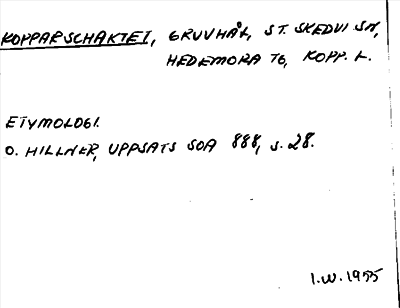 KOPPARSCHAKTET, GRUVHÅL, ST. SKEDVI SN,
HEDEMORA TG, KOPP. L.
ETYMOLOGI.
O. HILLNER, UPPSATS SOA 888, S. 28.
I.W. 1955